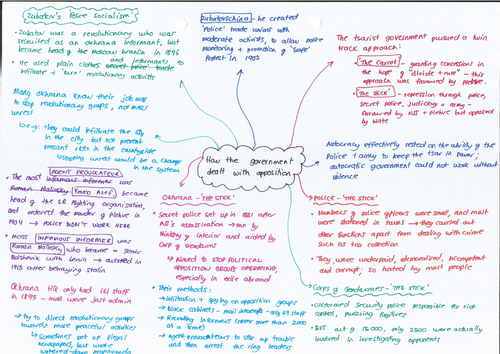 Zubatov's Police Socialism
Zubatov was a revolutionary who was
recruited as an okhrana informant, but
became head of the Moscow branch in 1896
He used plain clothes secret police and informants to
infiltrate + 'turn' revolutionary activists
Many okhrana knew their job was
to stop revolutionary groups, not mass
unrest
e.g. they could infiltrate the SRs
in the city but not prevent
peasant riots in the countryside
stopping unrest would be a change
in the system
AGENT PROVOCATEUR
The most infamous informer was
Roman Malinsky Yevno Azef, became
head of the SR fighting organisation,
and ordered the murder of Plehve in
1904 → POLICE DIDN'T WORK HERE
Most INFAMOUS INFORMER was
Roman Malinsky, who became a senior
Bolshevik with Lenin → ousted in
1913 after betraying Stalin
Okhrana HQ only had 161 staff
in 1895 - most were just admin
→ try to direct revolutionary groups
towards more peaceful activities
Sometimes set up illegal
newspapers, but were
watered-down propaganda
Zubatovschina - he created
'Police' trade unions with
moderate activists, to allow police
monitoring + promotion of 'safe'
Protest in 1902
How the government
dealt with opposition
Okhrana - 'THE STICK'
Secret police set up in 1881 after
AII's assassination → ran by
Ministry of Interior and aided by
Corp of Gendarms
→ Aimed to STOP POLITICAL
OPPOSITION GROUPS OPERATING,
especially in exile abroad
Their methods:
→ Infiltration + spying on opposition groups
→ Black cabinets - mail intercepts - only 49 staff
→ Recruiting informers (never more than 2000
at a time)
→ Agent provocateurs to stir up trouble
and then arrest the ring leaders
The tsarist government pursued a twin
track approach:
'The Carrot' - granting concession in
the hope of "divide + rule" - this
approach was favoured by
'The Stick' - repression through police,
secret police, judiciary + army -
favoured by NII + Plehve but opposed
by Witte
Autocracy effectively rested on the ability of the
Police + army to keep the tsar in power;
autocratic government could not work without
violence
POLICE - 'THE STICK'
Numbers of police officers were small, and most
were stationed in towns → they carried out
other functions apart from dealing with crime
such as tax collection
They were underpaid, demoralised, incompetent
and corrupt; so hated by most people
Corps of Gendarmes - 'THE STICK'
Uniformed Security police responsible for riot
control, pursuing fugitives
BUT out of 15,000, only 2500 were actually
involved in investigating opponents